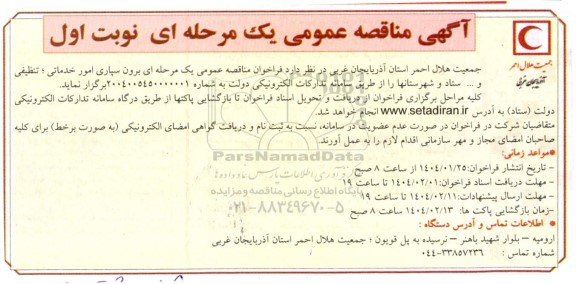 آگهی مناقصه عمومی یک مرحله ای نوبت اول
جمعیت هلال احمر
آذربایجان غربی
جمعیت هلال احمر استان آذربایجان غربی در نظر دارد فراخوان مناقصه عمومی یک مرحله ای برون سپاری امور خدماتی ؛ تنظیفی
و ... ستاد و شهرستانها را از طریق سامانه تدارکات الکترونیکی دولت به شماره ۲۰۰۴۰۰۵۴۵۰۰۰۰۰۰۱ برگزار نماید.
کلیه مراحل برگزاری فراخوان از دریافت و تحویل اسناد فراخوان تا بازگشایی پاکتها از طریق درگاه سامانه تدارکات الکترونیکی
دولت (ستاد) به آدرس www.setadiran.ir انجام خواهد شد.
متقاضیان شرکت در فراخوان در صورت عدم عضویت در سامانه، نسبت به ثبت نام و دریافت گواهی امضای الکترونیکی (به صورت برخط) برای کلیه
صاحبان امضای مجاز و مهر سازمانی اقدام لازم را به عمل آورند.
مواعد زمانی:
- تاریخ انتشار فراخوان: ۱۴۰۴/۰۱/۲۵ از ساعت ۸ صبح
- مهلت دریافت اسناد فراخوان: ۱۴۰۴/۰۲/۰۱ تا ساعت ۱۹
- مهلت ارسال پیشنهادات: ۱۴۰۴/۰۲/۱۱ تا ساعت ۱۹
-زمان بازگشایی پاکت ها: ۱۴۰۴/۰۲/۱۳ ساعت ۸ صبح
اطلاعات تماس و آدرس دستگاه :
ارومیه – بلوار شهید باهنر – نرسیده به پل قویون ؛ جمعیت هلال احمر استان آذربایجان غربی
شماره تماس : ۰۴۴-۳۳۸۵۷۲۳۶
ParsNamadData
پایگاه اطلاع رسانی مناقصه و مزایده
۰۲۱-۸۸۳۴۹۶۷۰-۵